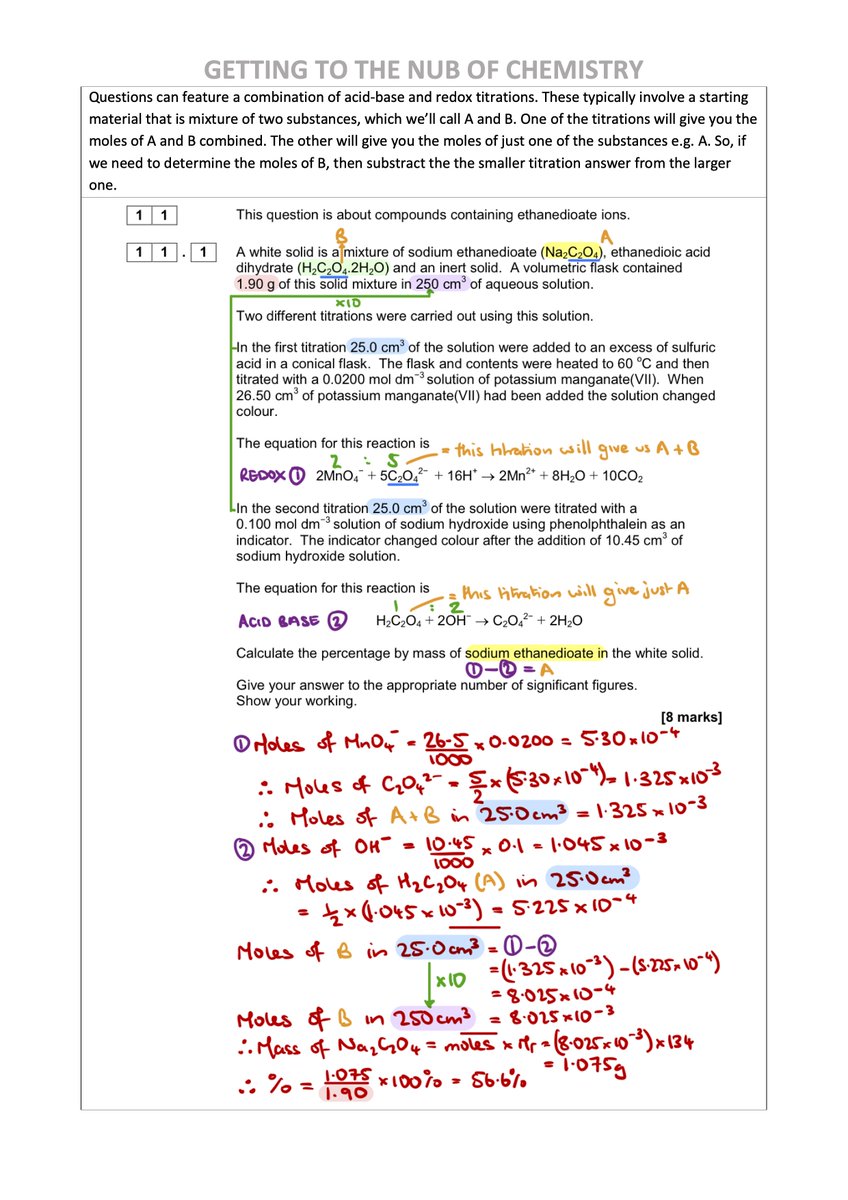 GETTING TO THE NUB OF CHEMISTRY
Questions can feature a combination of acid-base and redox titrations. These typically involve a starting
material that is mixture of two substances, which we'll call A and B. One of the titrations will give you the
moles of A and B combined. The other will give you the moles of just one of the substances e.g. A. So, if
we need to determine the moles of B, then substract the the smaller titration answer from the larger
one.
1 1 This question is about compounds containing ethanedioate ions.
B A
1 1 . 1 A white solid is a mixture of sodium ethanedioate (Na₂C₂O₄), ethanedioic acid
dihydrate (H₂C₂O₄.2H₂O) and an inert solid. A volumetric flask contained
1.90 g of this solid mixture in 250 cm³ of aqueous solution.
x10
Two different titrations were carried out using this solution.
In the first titration 25.0 cm³ of the solution were added to an excess of sulfuric
acid in a conical flask. The flask and contents were heated to 60 °C and then
titrated with a 0.0200 mol dm⁻³ solution of potassium manganate(VII). When
26.50 cm³ of potassium manganate(VII) had been added the solution changed
colour.
The equation for this reaction is = this titration will give us A + B
2 : 5
REDOX ① 2MnO₄⁻ + 5C₂O₄²⁻ + 16H⁺ → 2Mn²⁺ + 8H₂O + 10CO₂
In the second titration 25.0 cm³ of the solution were titrated with a
0.100 mol dm⁻³ solution of sodium hydroxide using phenolphthalein as an
indicator. The indicator changed colour after the addition of 10.45 cm³ of
sodium hydroxide solution.
The equation for this reaction is = this titration will give just A
1 : 2
ACID BASE ② H₂C₂O₄ + 2OH⁻ → C₂O₄²⁻ + 2H₂O
Calculate the percentage by mass of sodium ethanedioate in the white solid.
①-② = A
Give your answer to the appropriate number of significant figures.
Show your working.
[8 marks]
① Moles of MnO₄⁻ = 26.5/1000 x 0.0200 = 5.30 x 10⁻⁴
∴ Moles of C₂O₄²⁻ = 5/2 x (5.30 x 10⁻⁴) = 1.325 x 10⁻³
∴ Moles of A+B in 25.0cm³ = 1.325 x 10⁻³
② Moles of OH⁻ = 10.45/1000 x 0.1 = 1.045 x 10⁻³
∴ Moles of H₂C₂O₄ (A) in 25.0cm³
= ½ x (1.045 x 10⁻³) = 5.225 x 10⁻⁴
Moles of B in 25.0cm³ = ①-②
= (1.325 x 10⁻³) - (5.225 x 10⁻⁴)
x10
= 8.025 x 10⁻⁴
Moles of B in 250cm³ = 8.025 x 10⁻³
∴ Mass of Na₂C₂O₄ = moles x Mr = (8.025 x 10⁻³) x 134
= 1.075g
∴ % = 1.075/1.90 x 100% = 56.6%